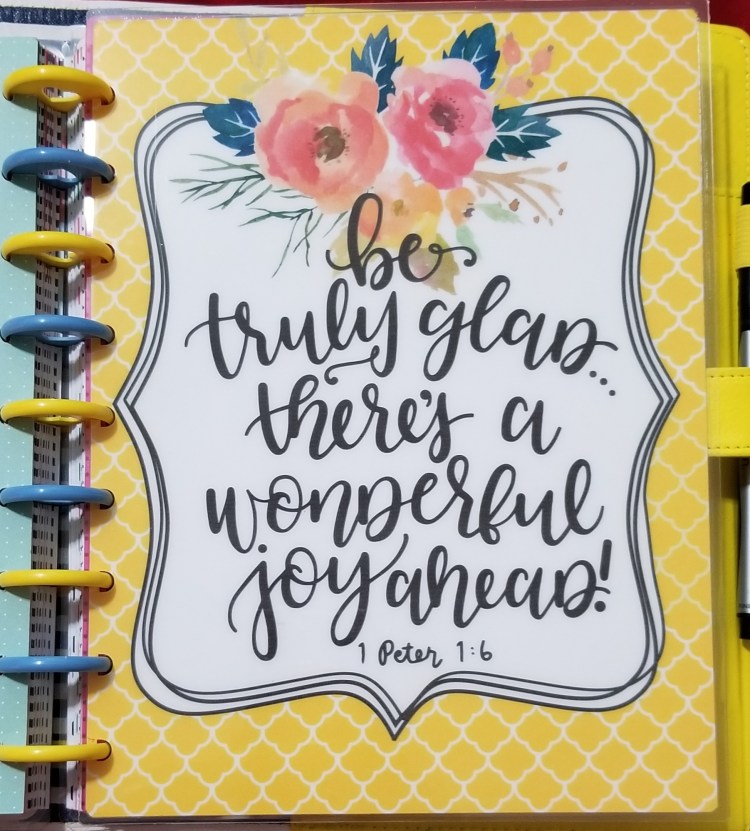 be
truly glad...
there's a
wonderful
joy ahead!
1 Peter 1:6